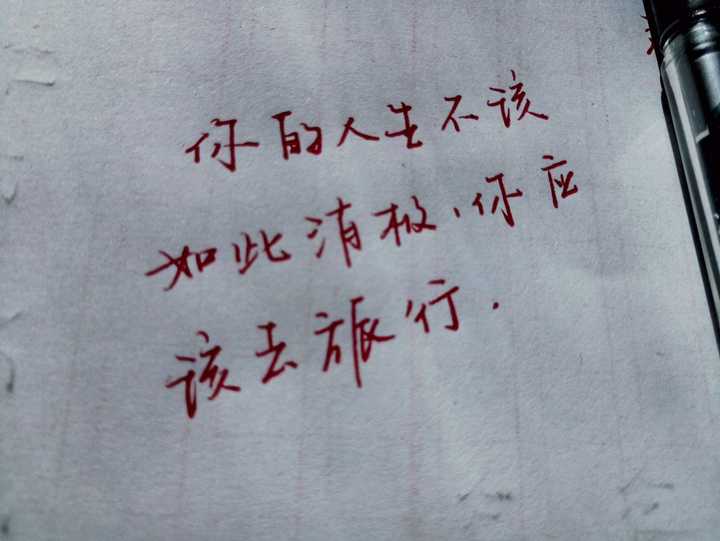 你的人生不该
如此消极，你应
该去旅行.